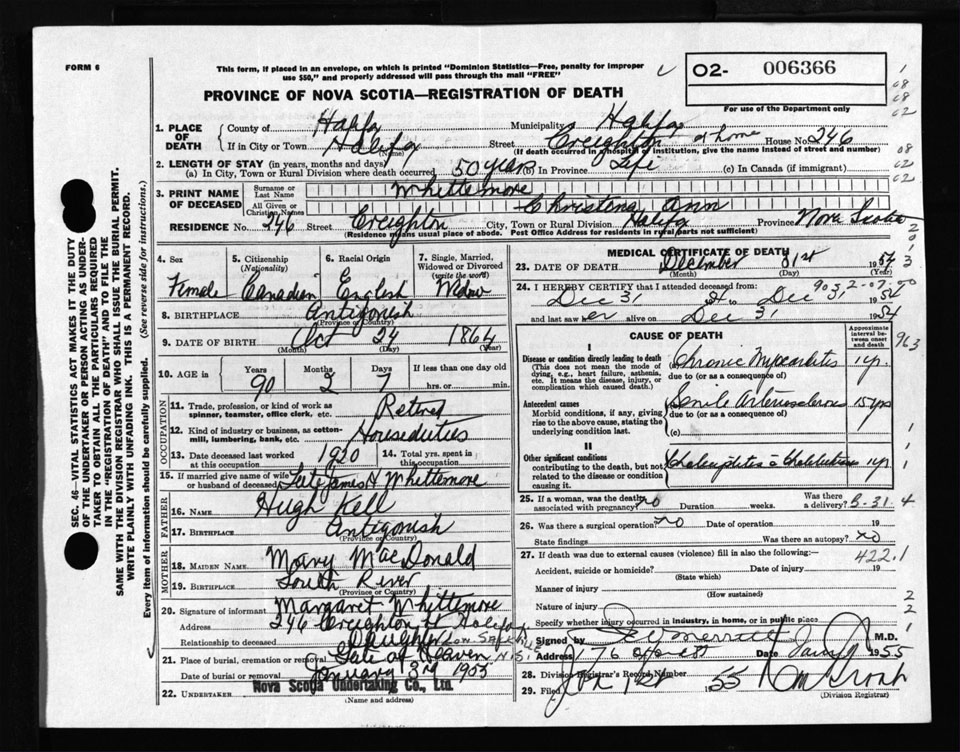 FORM 6
This form, if placed in an envelope, on which is printed "Dominion Statistics—Free, penalty for improper
use $50," and properly addressed will pass through the mail "FREE"
02- 006366
PROVINCE OF NOVA SCOTIA—REGISTRATION OF DEATH
For use of the Department only
1. PLACE OF DEATH
County of Halifax Municipality Halifax
If in City or Town Halifax (Name) Street Creighton at home House No. 246
(If death occurred in a hospital or institution, give the name instead of street and number)
2. LENGTH OF STAY (in years, months and days)
(a) In City, Town or Rural Division where death occurred 50 years (b) In Province Life (c) In Canada (if immigrant)
3. PRINT NAME OF DECEASED
Surname or Last Name Whittemore
All Given or Christian Names Christina Ann
RESIDENCE No. 246 Street Creighton City, Town or Rural Division Halifax Province Nova Scotia
(Residence means usual place of abode. Post Office Address for residents in rural parts not sufficient)
4. Sex Female
5. Citizenship (Nationality) Canadian
6. Racial Origin English
7. Single, Married, Widowed or Divorced (write the word) Widow
8. BIRTHPLACE Antigonish
(Province or Country)
9. DATE OF BIRTH Oct 24 1864
(Month) (Day) (Year)
10. AGE in Years 90 Months 2 Days 7 If less than one day old hrs. or min.
OCCUPATION
11. Trade, profession or kind of work as spinner, teamster, office clerk, etc. Retired
12. Kind of industry or business, as cotton-mill, lumbering, bank, etc. Houseduties
13. Date deceased last worked at this occupation 1920
14. Total yrs. spent in this occupation
15. If married give name of wife or husband of deceased Late James H Whittemore
FATHER
16. NAME Hugh Kell
17. BIRTHPLACE Antigonish
(Province or Country)
MOTHER
18. MAIDEN NAME Mary MacDonald
19. BIRTHPLACE South River
(Province or Country)
20. Signature of informant Margaret Whittemore
Address 246 Creighton St Halifax
Relationship to deceased Daughter
21. Place of burial, cremation or removal Gate of Heaven N.S.
Date of burial or removal January 3rd 1955
22. UNDERTAKER Nova Scotia Undertaking Co., Ltd.
(Name and address)
MEDICAL CERTIFICATE OF DEATH
23. DATE OF DEATH December 31st 1954
(Month) (Day) (Year)
24. I HEREBY CERTIFY that I attended deceased from:
Dec 31 54 to Dec 31 1954
and last saw her alive on Dec 31 1954
CAUSE OF DEATH
Approximate interval between onset and death
I
Disease or condition directly leading to death
(This does not mean the mode of dying, e.g., heart failure, asthenia, etc. It means the disease, injury, or complication which caused death.)
Chronic Myocarditis 1 yr.
due to (or as a consequence of)
Antecedent causes
Morbid conditions, if any, giving rise to the above cause, stating the underlying condition last.
Senile Arteriosclerosis 15 yrs
due to (or as a consequence of)
(c)
II
Other significant conditions
contributing to the death, but not related to the disease or condition causing it.
1 yr
25. If a woman, was the death associated with pregnancy? no Duration weeks. Was there a delivery?
26. Was there a surgical operation? no Date of operation 19
State findings Was there an autopsy? no
27. If death was due to external causes (violence) fill in also the following:— 422.1
Accident, suicide or homicide? Date of injury 19
(State which)
Manner of injury
(How sustained)
Nature of injury
Specify whether injury occurred in industry, in home, or in public place
Signed by M.D.
Address 176 Date 1955
28. Division Registrar's Record Number
29. Filed Jan 1st 55
(Division Registrar)
SEC. 46—VITAL STATISTICS ACT MAKES IT THE DUTY
OF THE UNDERTAKER OR PERSON ACTING AS UNDERTAKER TO OBTAIN ALL THE PARTICULARS REQUIRED
IN THE "REGISTRATION OF DEATH" AND TO FILE THE
SAME WITH THE DIVISION REGISTRAR WHO SHALL ISSUE THE BURIAL PERMIT.
WRITE PLAINLY WITH UNFADING INK. THIS IS A PERMANENT RECORD.
Every item of information should be carefully supplied. (See reverse side for instructions.)